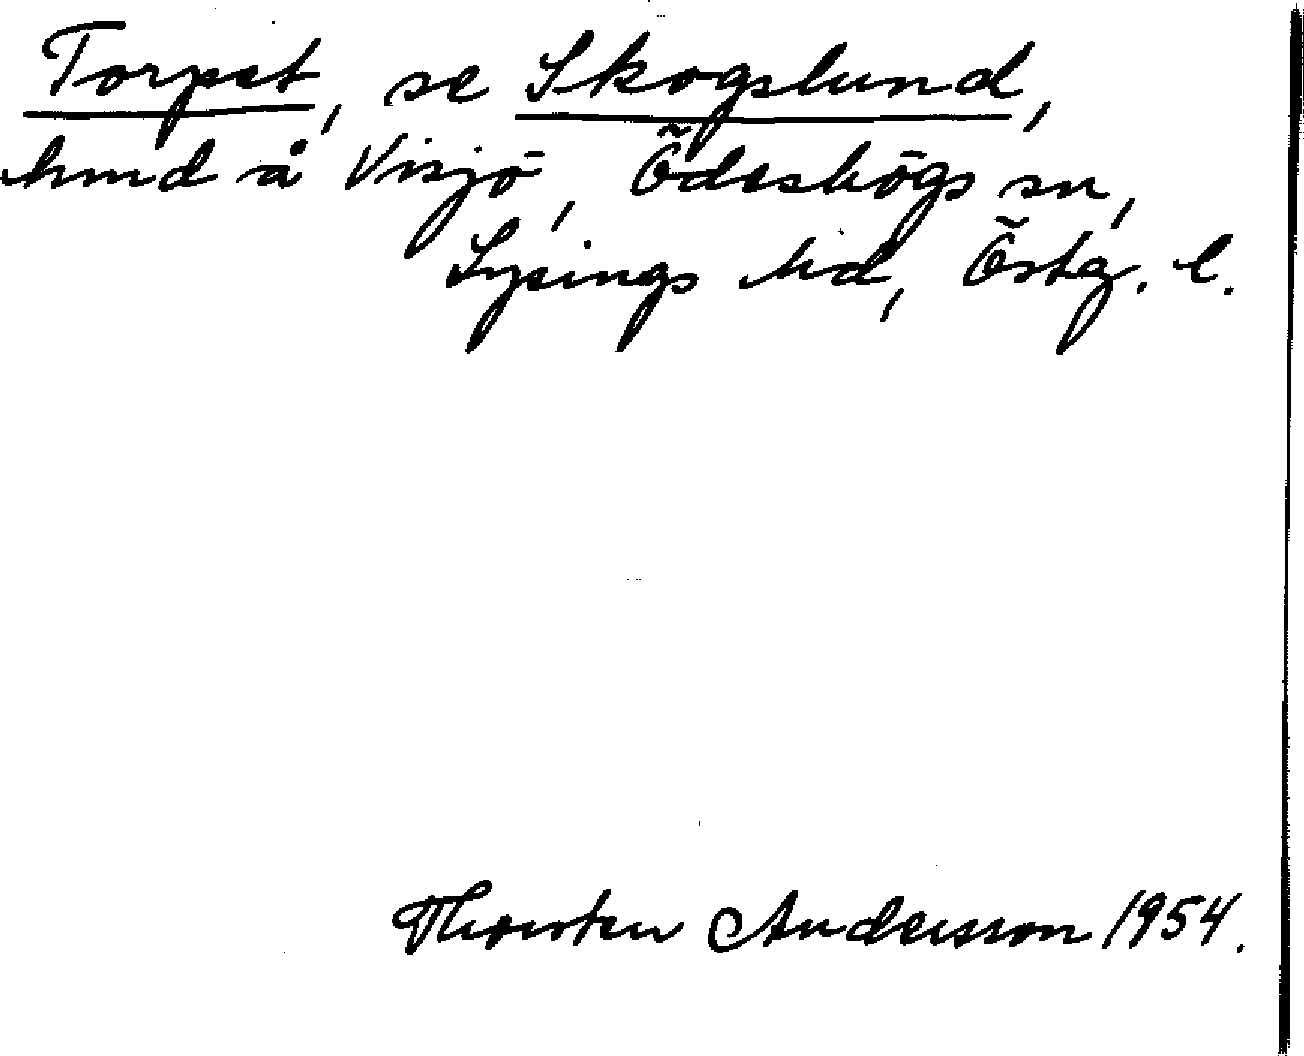 Torpet, se Skogslund,
hmd å Visjö, Ödeshögs sn,
Lysings hd, Östg. l.
Thorsten Andersson 1954.